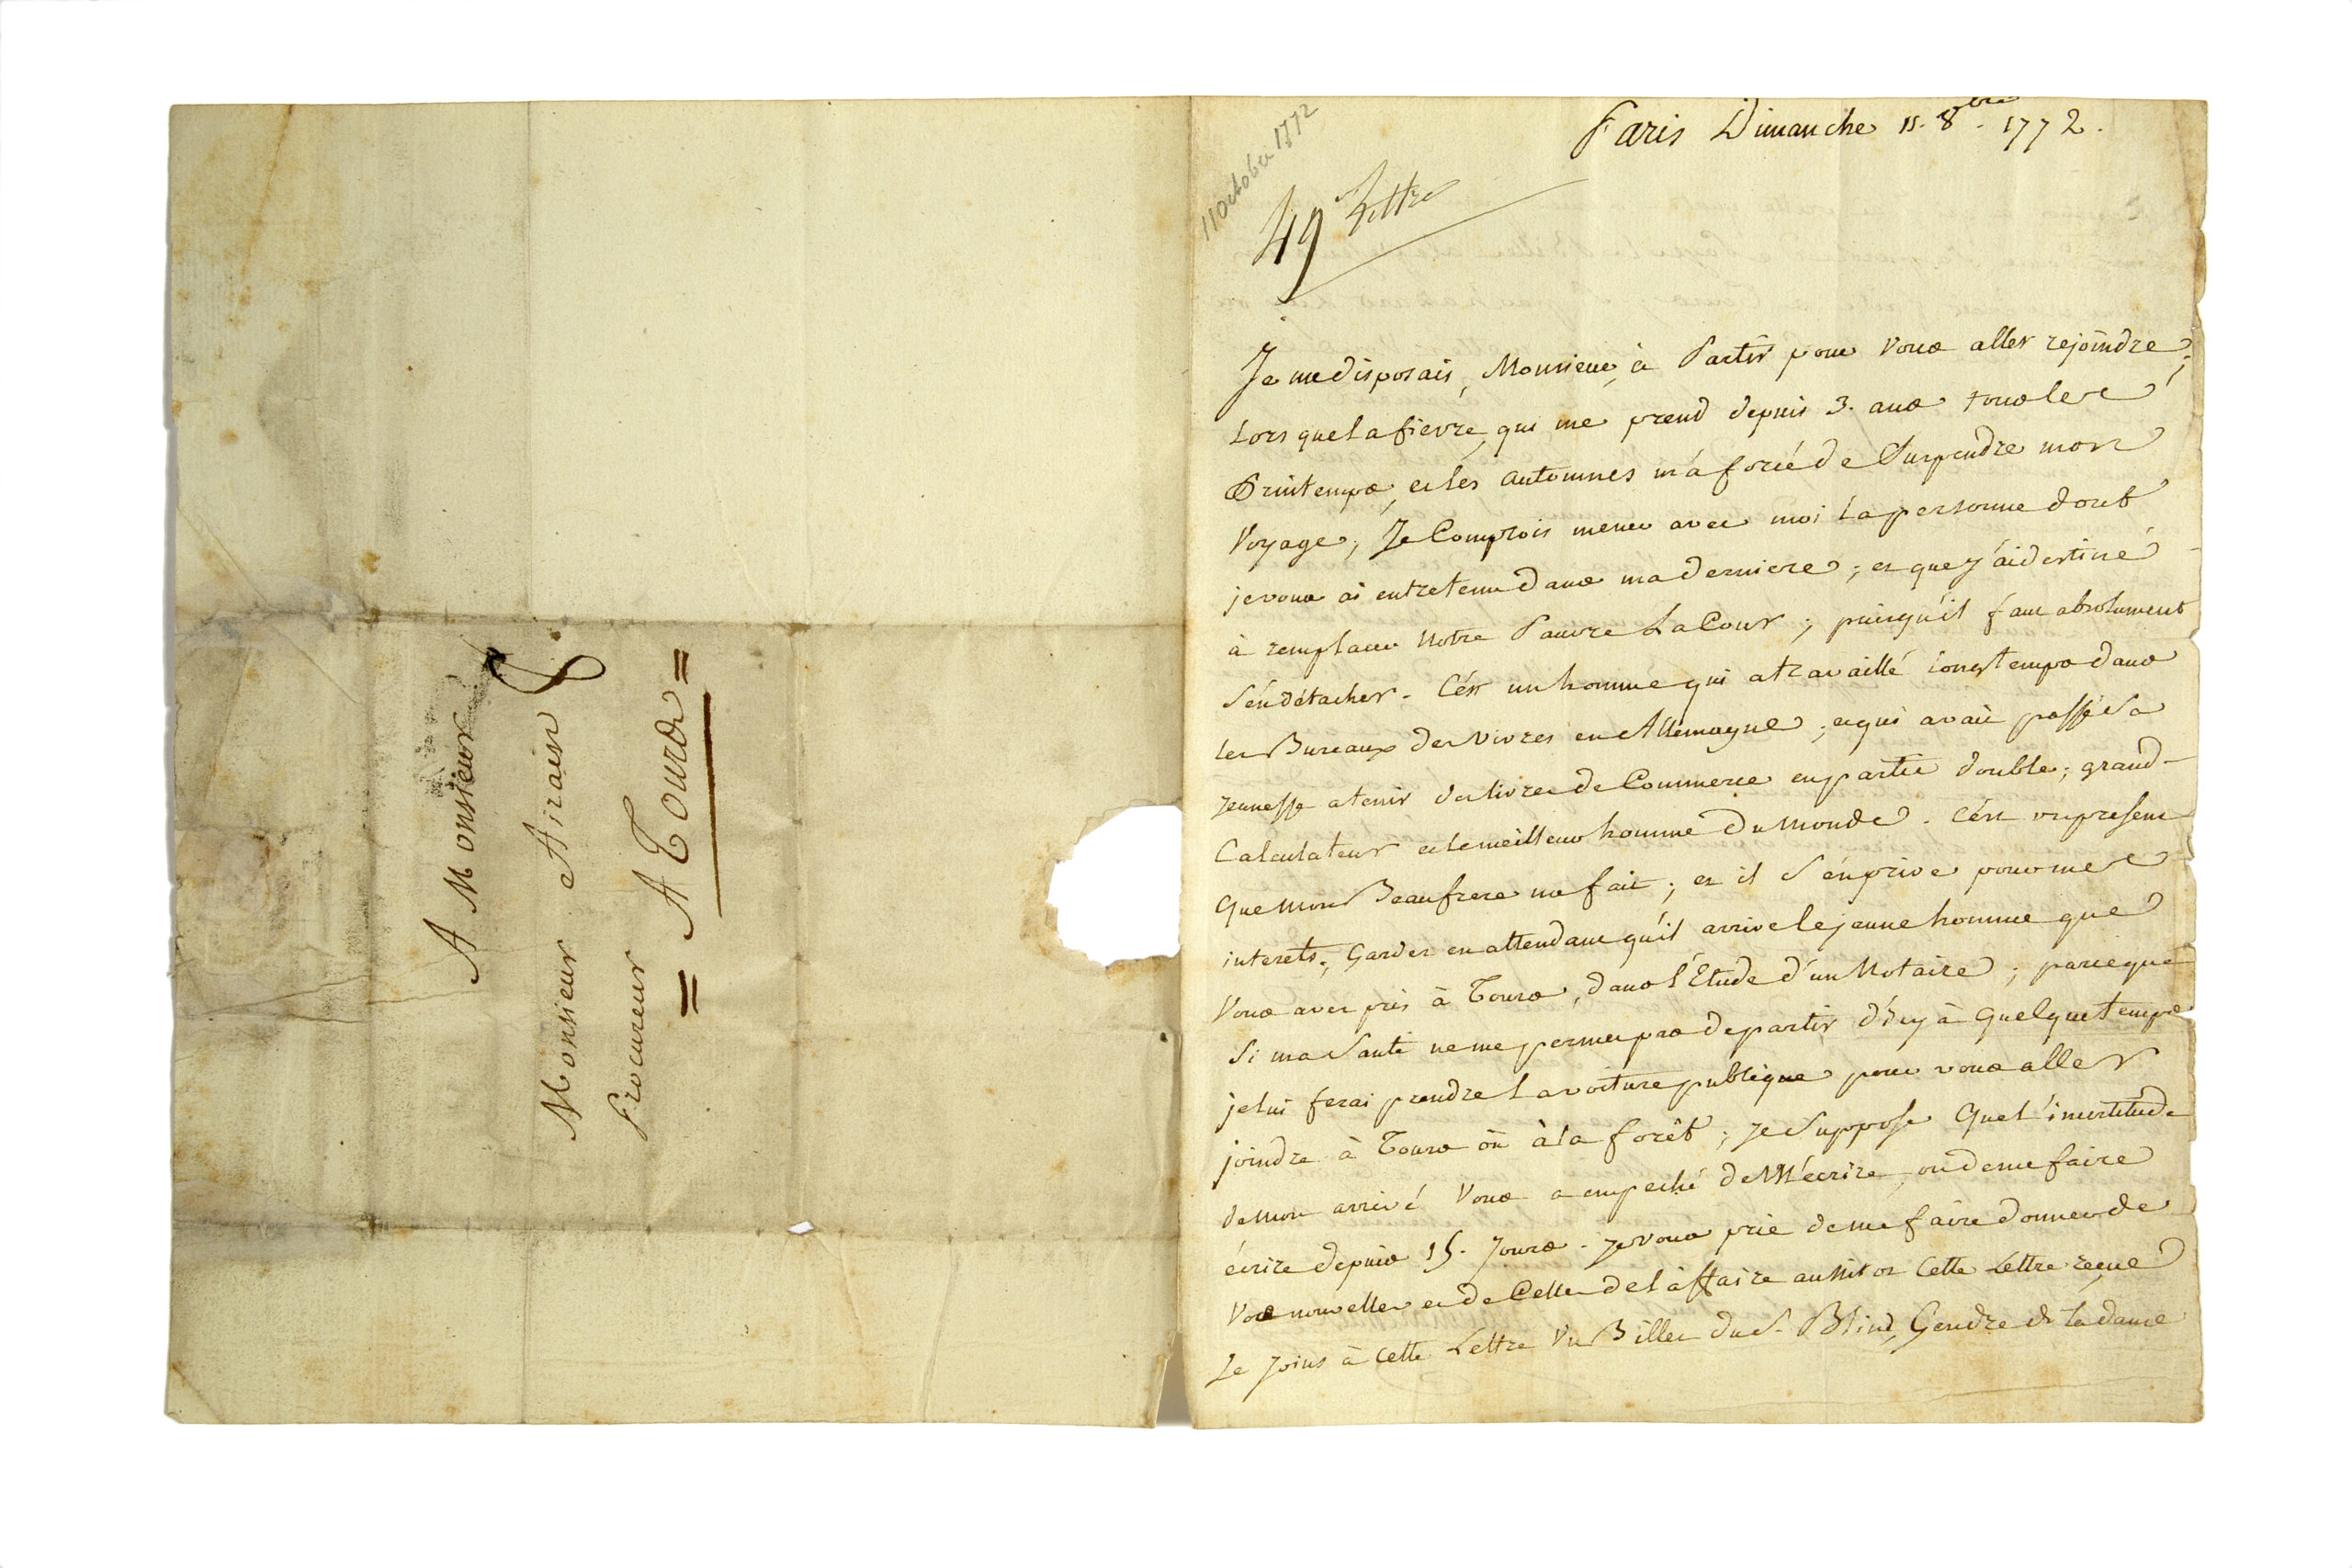 A Monsieur
Monsieur Airain
Procureur
= A Tours =
11 October 1772
Paris Dimanche 11. 8bre. 1772.
49 Lettre
Je me disposais, Monsieur, à Partir pour Vous aller rejoindre;
Lors que La fievre, qui me prend depuis 3. ans tous les
Printemps, et les automnes m'a forcé de Suspendre mon
Voyage; Je Comptois mener avec moi La personne dont
je vous ai entretenu dans ma derniere; et que j'ai destiné
à remplacer Notre Pauvre La Cour; puisqu'il faut absolument
S'én détacher. C'ést un homme qui a travaillé Longtemps dans
les Bureaux des Vivres en Allemagne; et qui avait passé Sa
Jeunesse a tenir des livres de Commerce en partie double; grand
Calculateur et le meilleur homme du Monde. C'ést un present
Que mon Beaufrere me fait; et il S'én prive pour mes
interets. Garder en attendant qu'il arrive le jeune homme que
Vous avez pris à Tours, dans l'Etude d'un Notaire; parceque
Si ma Santé ne me permet pas de partir d'icy à Quelque temps
je lui ferai prendre La voiture publique pour vous aller
joindre à Tours ou à la forêt; Je Suppose Que L'incertitude
de mon arrivé Vous a empeché de M'écrire, ou de me faire
écrire depuis 15. Jours. Je vous prie de me faire donner de
Vos nouvelles et de Celles de l'affaire aussitot Cette Lettre reçue
Je Joins à Cette Lettre Un Billet du S. Blind, Gendre de la dame